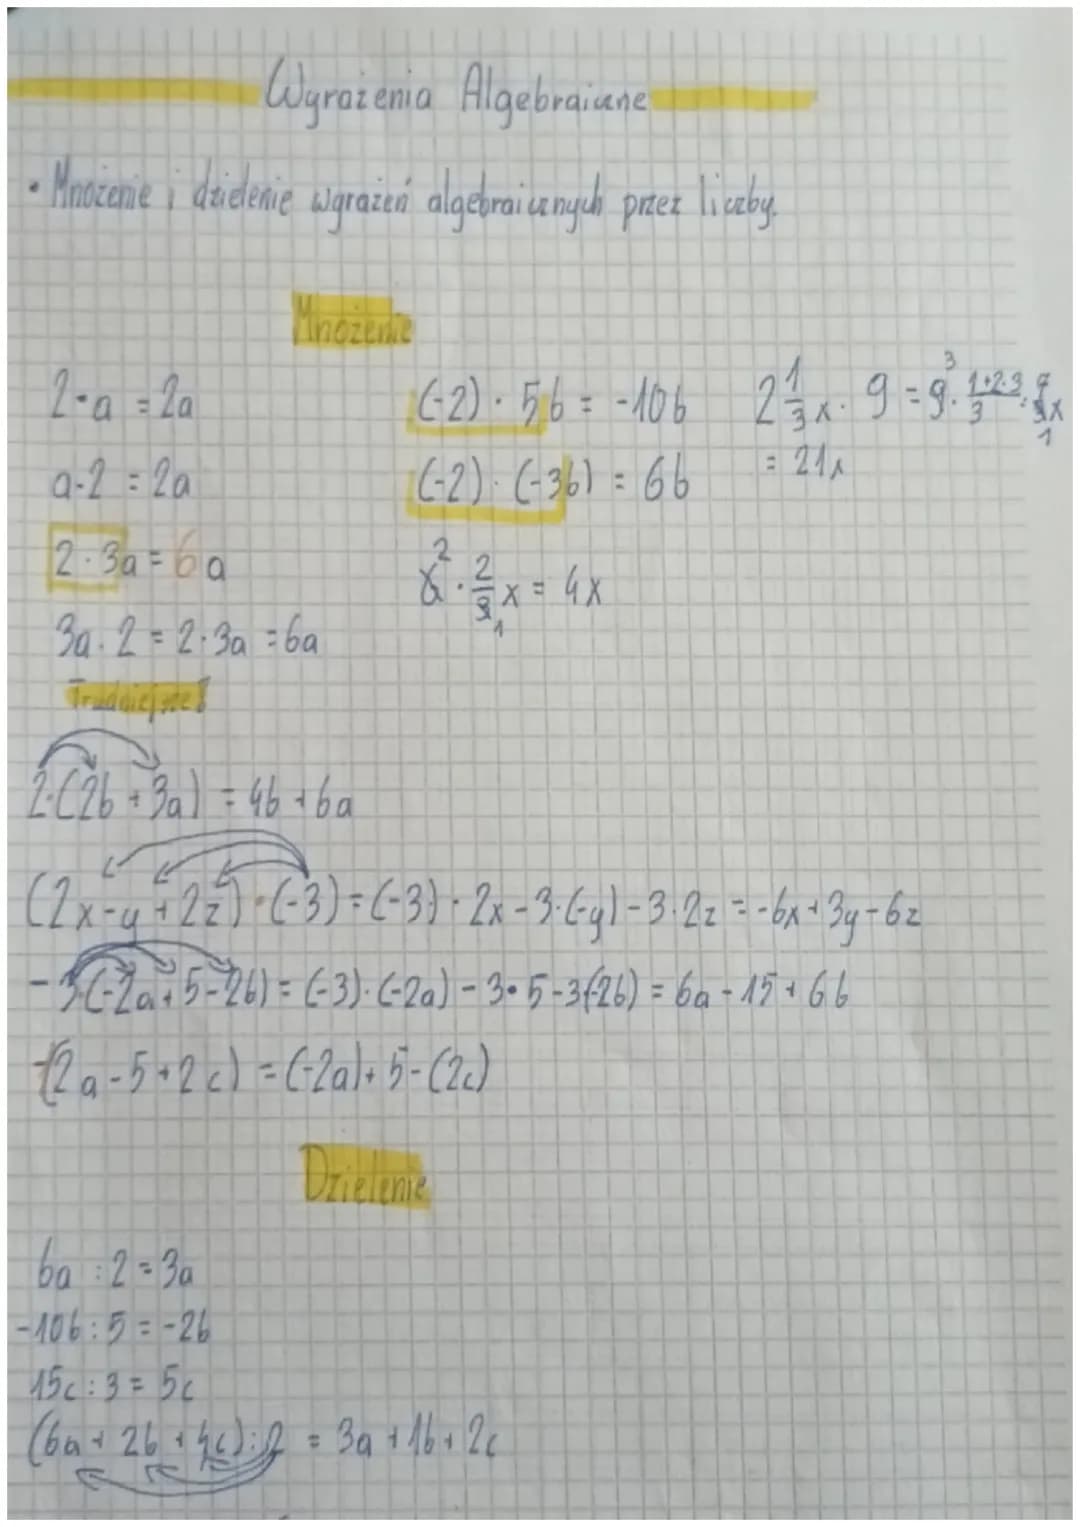 Wyrażenia Algebraiczne
• Mnożenie i dzielenie wyrażeń algebraicznych przez liczby.
Mnożenie
2·a = 2a
a·2 = 2a
2·3a = 6a
3a·2 = 2·3a = 6a
(-2)·5b = -10b
(-2)·(-3b) = 6b
6² · 2/3₁ x = 4x
2 1/3 x · 9 = 9³ · (1+2·3)/3 · 7/3₁ x
= 21x
Trudniejsze!
2·(2b + 3a) = 4b + 6a
(2x - y + 2z)·(-3) = (-3)·2x - 3·(-y) - 3·2z = -6x + 3y - 6z
-3(-2a + 5 - 2b) = (-3)·(-2a) - 3·5 - 3(-2b) = 6a - 15 + 6b
-(2a - 5 + 2c) = (-2a) + 5 - (2c)
Dzielenie
6a : 2 = 3a
-10b : 5 = -2b
15c : 3 = 5c
(6a + 2b + 4c) : 2 = 3a + 1b + 2c